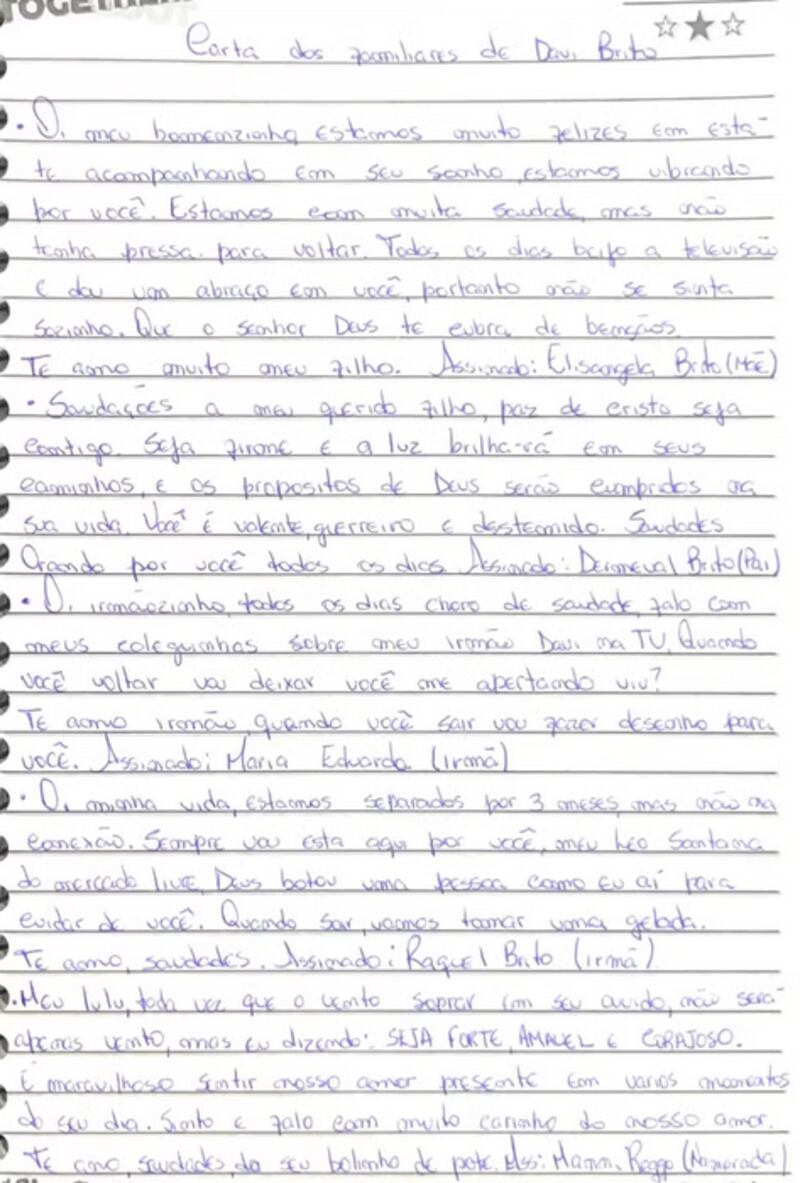 TOGETHER
Carta dos familiares de Davi Brito
• Oi meu homenzinho estamos muito felizes em está
te acompanhando em seu sonho, estamos vibrando
por você. Estamos com muita saudade, mas não
tenha pressa para voltar. Todos os dias beijo a televisão
e dou um abraço em você, portanto não se sinta
sozinho. Que o senhor Deus te cubra de bençãos.
Te amo muito meu filho. Assinado: Elisangela Brito (Mãe)
• Saudações a meu querido filho, paz de cristo seja
contigo. Seja firme e a luz brilha-rá em seus
caminhos, e os propositos de Deus serão cumpridos na
sua vida. Você é valente, guerreiro e destemido. Saudades
Orando por você todos os dias. Assinado: Demerval Brito (Pai)
• Oi, irmãozinho, todos os dias choro de saudade, falo com
meus coleguinhas sobre meu irmão Davi na TV. Quando
você voltar vou deixar você me apertando viu?
Te amo irmão, quando você sair vou fazer desenho para
você. Assinado: Maria Eduarda (irmã)
• Oi, minha vida, estamos separados por 3 meses, mas não na
conexão. Sempre vou esta aqui por você, meu Leo Santana
do mercado livre, Deus botou uma pessoa como eu aí para
cuidar de você. Quando sair, vamos tomar uma gelada.
Te amo, saudades. Assinado: Raquel Brito (irmã)
• Meu lulu, toda vez que o vento soprar em seu ouvido, não será
apenas vento, mas eu dizendo: SEJA FORTE, AMAVEL E CORAJOSO.
É maravilhoso sentir nosso amor presente em varios momentos
do seu dia. Sinto e falo com muito carinho do nosso amor.
Te amo, saudades do seu bolinho de pote. Ass: Mamm. Rego (Namorada)